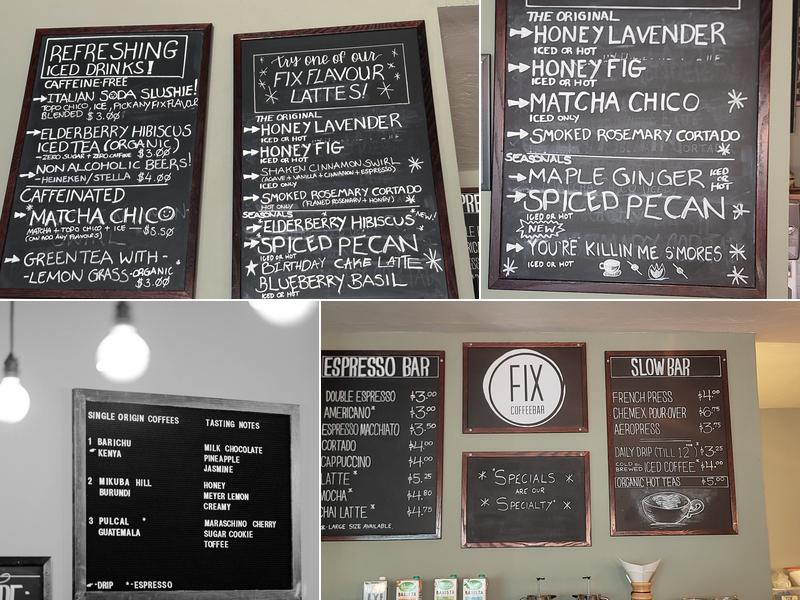 REFRESHING
ICED DRINKS!
CAFFEINE-FREE
ITALIAN SODA SLUSHIE!
TOPO CHICO, ICE, PICK ANY FIX FLAVOR
BLENDED $3.00
ELDERBERRY HIBISCUS
ICED TEA (ORGANIC)
-ZERO SUGAR + ZERO CAFFEINE $3.00
NON ALCOHOLIC BEERS!
-HEINEKEN/STELLA $4.00
CAFFEINATED
*MATCHA CHICO
MATCHA + TOPO CHICO + ICE — $5.50
(CAN ADD ANY FLAVOUR)
GREEN TEA WITH-
-LEMON GRASS-ORGANIC
$3.00
try one of our
FIX FLAVOUR
LATTES!
THE ORIGINAL
HONEY LAVENDER
ICED OR HOT
HONEY FIG
ICED OR HOT
SHAKEN CINNAMON SWIRL
(AGAVE + VANILLA + CINNAMON + ESPRESSO)
ICED ONLY
SMOKED ROSEMARY CORTADO
HOT ONLY (FLAMED ROSEMARY + HONEY)
SEASONALS
ELDERBERRY HIBISCUS *NEW!
SPICED PECAN
ICED OR HOT
BIRTHDAY CAKE LATTE
BLUEBERRY BASIL
ICED OR HOT
THE ORIGINAL
HONEY LAVENDER
ICED OR HOT
HONEY FIG
ICED OR HOT
MATCHA CHICO
ICED OR HOT
SMOKED ROSEMARY CORTADO
SEASONALS
MAPLE GINGER ICED OR HOT
SPICED PECAN
ICED OR HOT
NEW
YOU'RE KILLIN ME S'MORES
ICED OR HOT
SINGLE ORIGIN COFFEES
TASTING NOTES
1 BARICHU
KENYA
MILK CHOCOLATE
PINEAPPLE
JASMINE
2 MIKUBA HILL
BURUNDI
HONEY
MEYER LEMON
CREAMY
3 PULCAL *
GUATEMALA
MARASCHINO CHERRY
SUGAR COOKIE
TOFFEE
-DRIP *-ESPRESSO
ESPRESSO BAR
DOUBLE ESPRESSO $3.00
AMERICANO* $3.00
ESPRESSO MACCHIATO $3.50
CORTADO $4.00
CAPPUCCINO $4.00
LATTE* $5.25
MOCHA* $4.80
CHAI LATTE* $4.75
*-LARGE SIZE AVAILABLE.
FIX
COFFEEBAR
*SPECIALS
ARE OUR
SPECIALTY*
SLOW BAR
FRENCH PRESS $4.00
CHEMEX POUR OVER $6.75
AEROPRESS $3.75
DAILY DRIP (TILL 12)* $3.25
COLD BREWED ICED COFFEE* $4.00
ORGANIC HOT TEAS $5.00
BARISTA
BARISTA